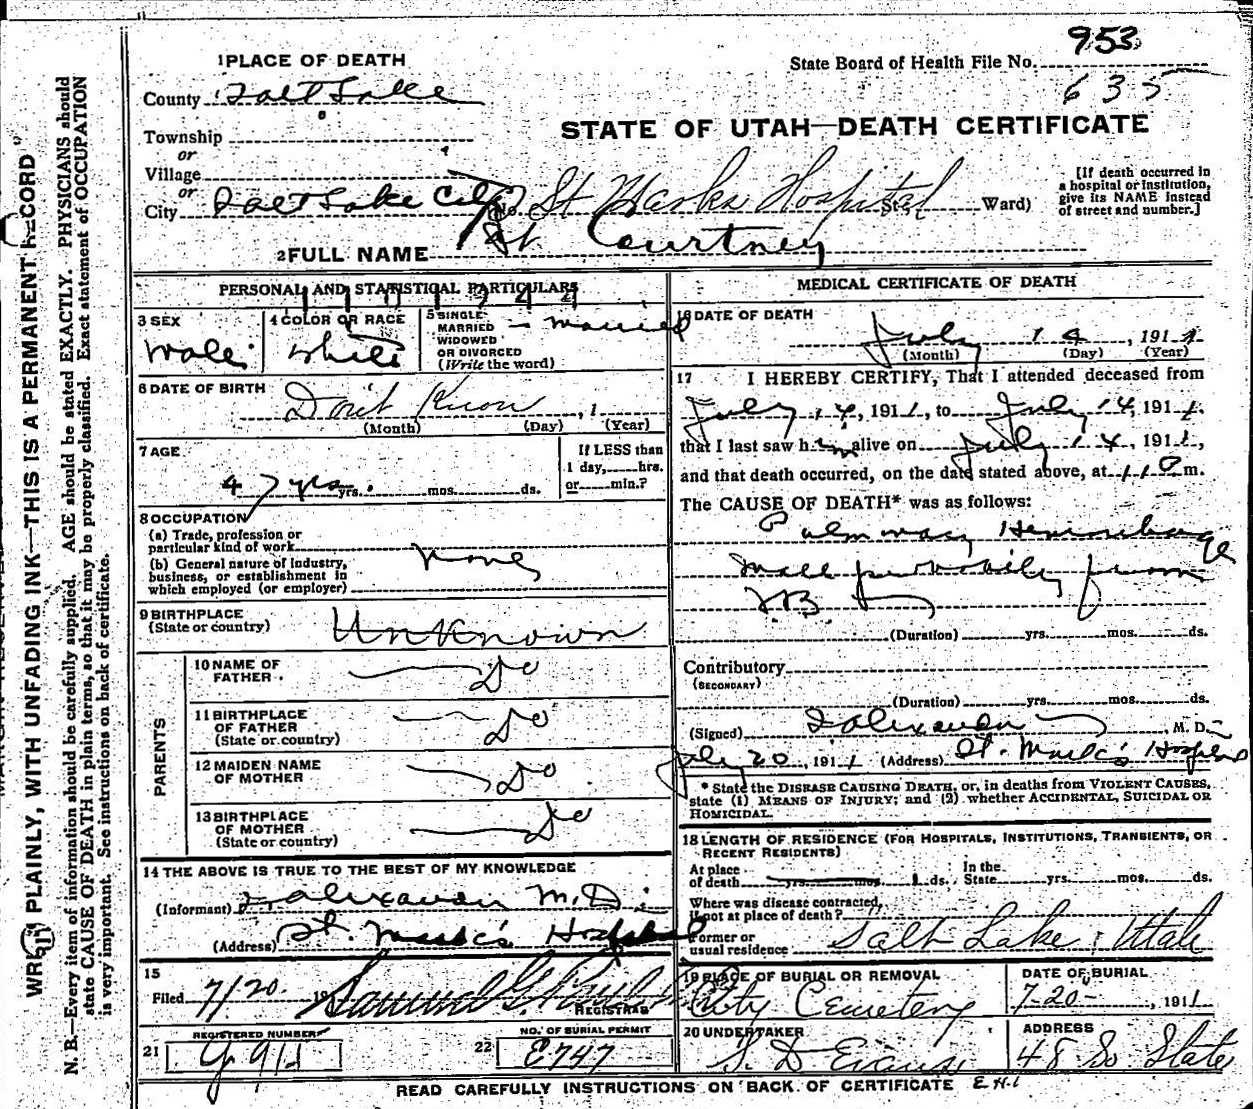 953
State Board of Health File No.
635
1 PLACE OF DEATH
County Salt Lake
STATE OF UTAH—DEATH CERTIFICATE
Township
or
Village
or
City Salt Lake City No. St Marks Hospital St. Ward)
[If death occurred in a hospital or institution, give its NAME instead of street and number.]
2 FULL NAME Courtney
PERSONAL AND STATISTICAL PARTICULARS
3 SEX Male
4 COLOR OR RACE White
5 SINGLE MARRIED WIDOWED OR DIVORCED (Write the word) Married
6 DATE OF BIRTH Don't Know , 1
(Month) (Day) (Year)
7 AGE 47 yrs yrs. mos. ds.
If LESS than 1 day, hrs. or min.?
8 OCCUPATION
(a) Trade, profession or particular kind of work
(b) General nature of industry, business, or establishment in which employed (or employer)
None
9 BIRTHPLACE (State or country) Unknown
PARENTS
10 NAME OF FATHER Do
11 BIRTHPLACE OF FATHER (State or country) Do
12 MAIDEN NAME OF MOTHER Do
13 BIRTHPLACE OF MOTHER (State or country) Do
14 THE ABOVE IS TRUE TO THE BEST OF MY KNOWLEDGE
(Informant) M.D.
(Address) St. Mark's Hospital
15
Filed 7/20 19 Samuel G. REGISTRAR
REGISTERED NUMBER
21
NO. OF BURIAL PERMIT
22 E747
MEDICAL CERTIFICATE OF DEATH
16 DATE OF DEATH
July 14, 1911
(Month) (Day) (Year)
17 I HEREBY CERTIFY, That I attended deceased from
July 14, 1911, to July 14 1911,
that I last saw him alive on July 14, 1911,
and that death occurred, on the date stated above, at m.
The CAUSE OF DEATH* was as follows:
Pulmonary Hemorrhage
probably from
T.B.
(Duration) yrs. mos. ds.
Contributory
(SECONDARY)
(Duration) yrs. mos. ds.
(Signed) M. D.
July 20, 1911 (Address) St. Mark's Hospital
* State the DISEASE CAUSING DEATH, or, in deaths from VIOLENT CAUSES, state (1) MEANS OF INJURY; and (2) whether ACCIDENTAL, SUICIDAL OR HOMICIDAL.
18 LENGTH OF RESIDENCE (FOR HOSPITALS, INSTITUTIONS, TRANSIENTS, OR RECENT RESIDENTS)
At place of death yrs. mos. 1 ds. In the State yrs. mos. ds.
Where was disease contracted, if not at place of death?
Former or usual residence Salt Lake, Utah
19 PLACE OF BURIAL OR REMOVAL
City Cemetery
DATE OF BURIAL
7-20-, 1911
20 UNDERTAKER
S. D. Evans
ADDRESS
48 So State
READ CAREFULLY INSTRUCTIONS ON BACK OF CERTIFICATE
WRITE PLAINLY, WITH UNFADING INK—THIS IS A PERMANENT RECORD
N. B.—Every item of information should be carefully supplied. AGE should be stated EXACTLY. PHYSICIANS should
state CAUSE OF DEATH in plain terms, so that it may be properly classified. Exact statement of OCCUPATION
is very important. See instructions on back of certificate.